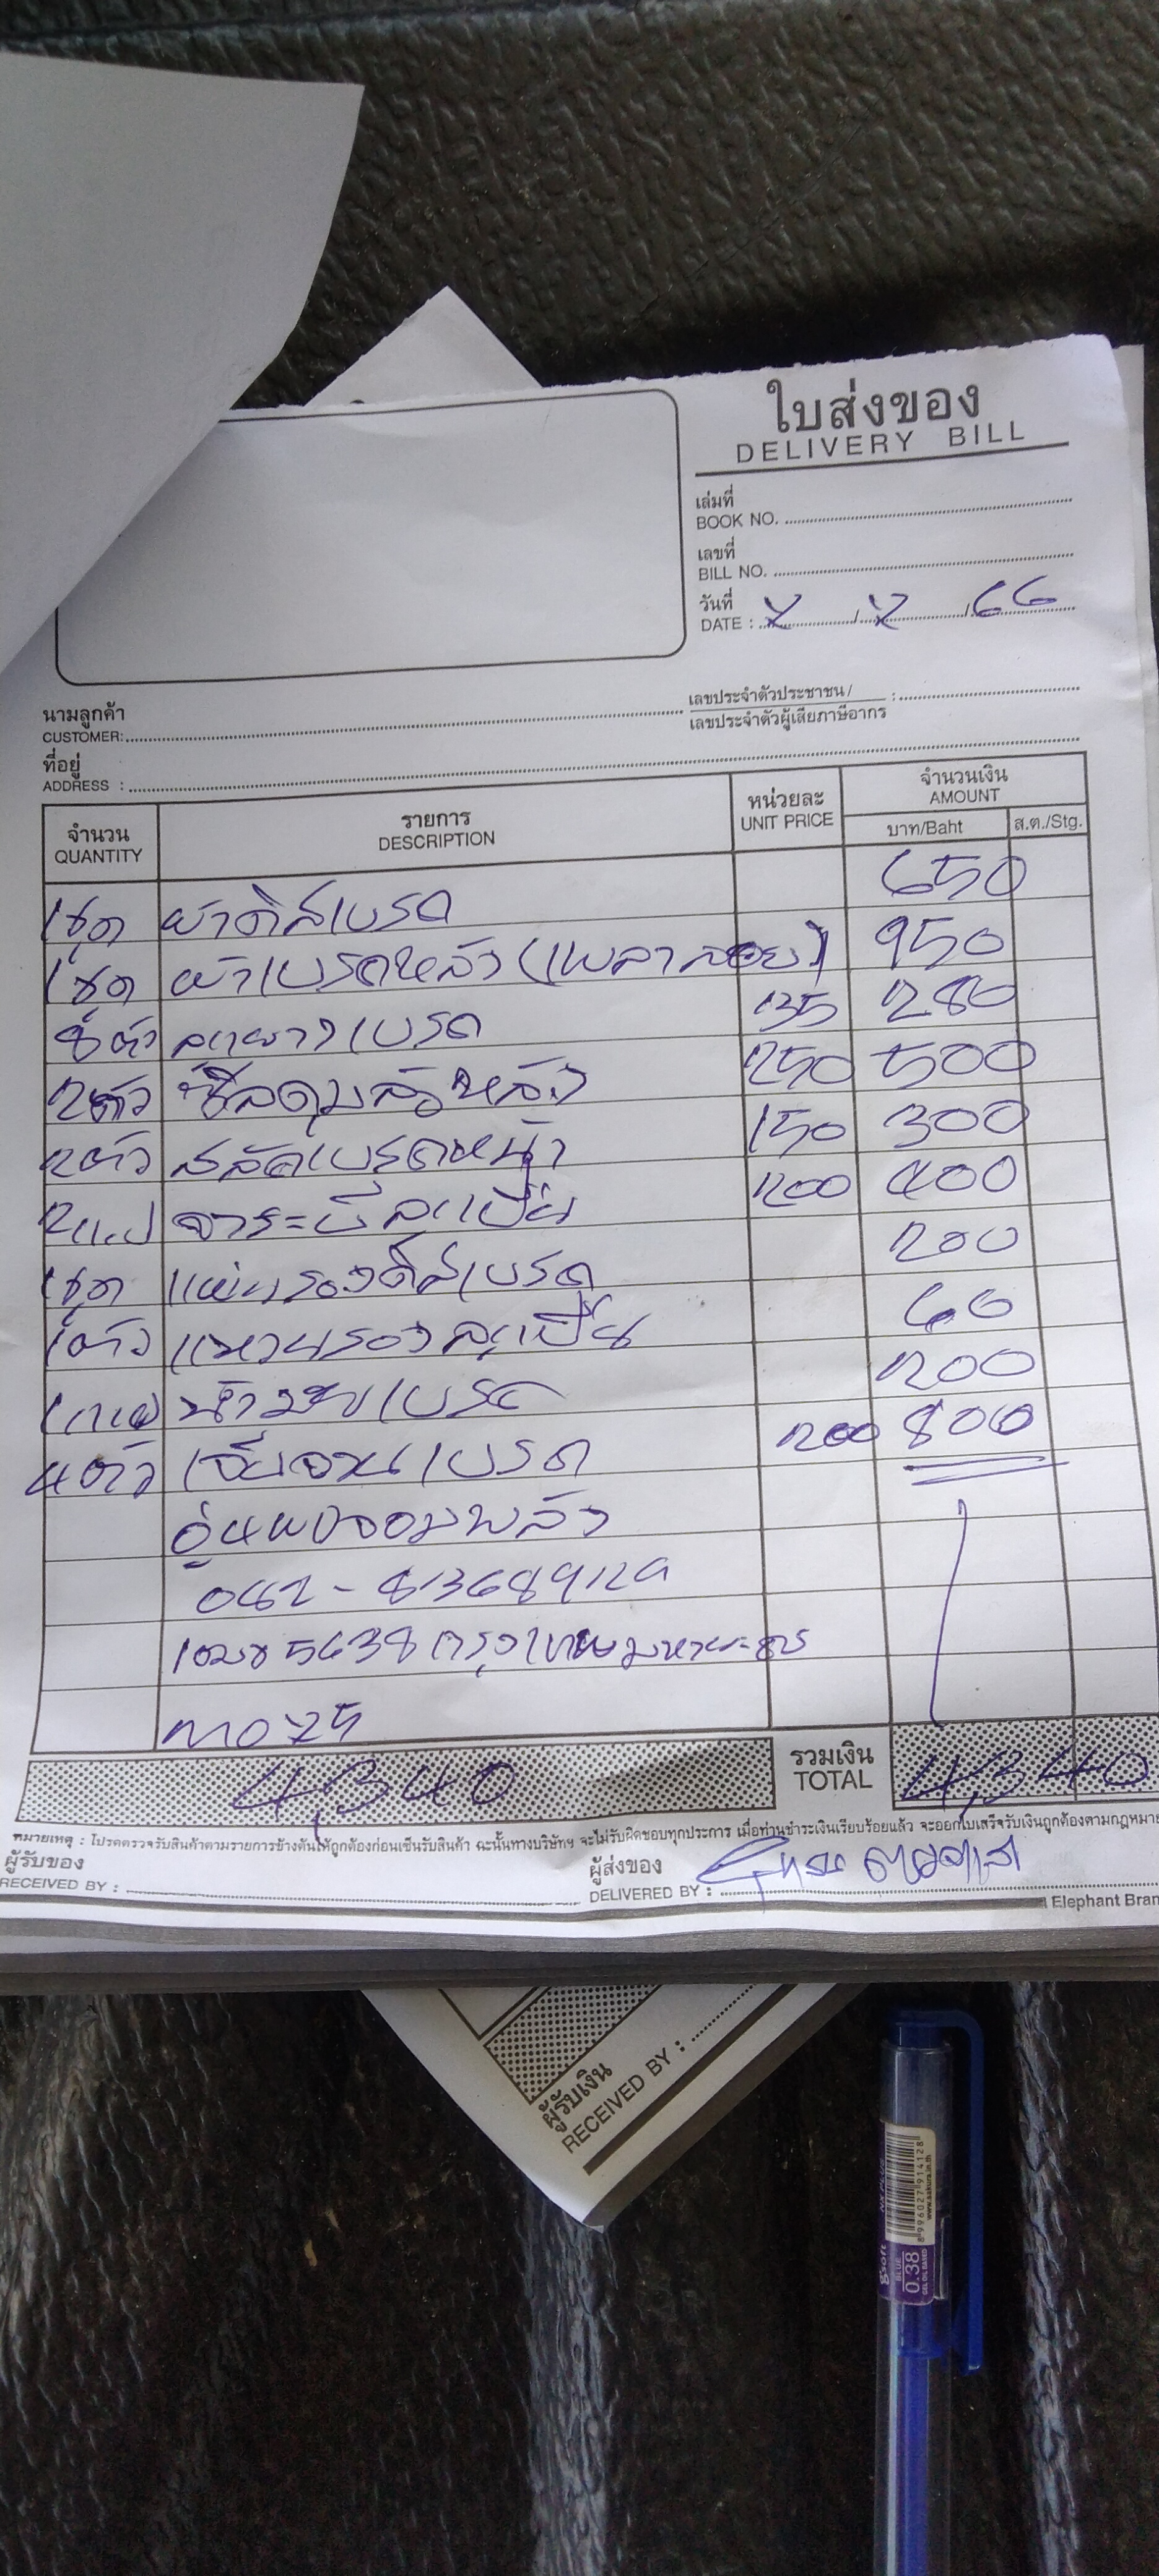 ใบส่งของ
DELIVERY BILL
เล่มที่
BOOK NO.
เลขที่
BILL NO.
วันที่
DATE : / / 66
นามลูกค้า
CUSTOMER:
เลขประจำตัวประชาชน / :
เลขประจำตัวผู้เสียภาษีอากร
ที่อยู่
ADDRESS :
จำนวน รายการ หน่วยละ จำนวนเงิน
QUANTITY DESCRIPTION UNIT PRICE AMOUNT
บาท/Baht ส.ต./Stg.
1ชุด ผ้าดิสเบรค 650
1ชุด ผ้าเบรคหลัง (เพลาลอย) 950
8ตัว ลูกยางเบรค 135 280
2ตัว ซีลดุมล้อหลัง 250 500
2ตัว สลักเบรคหน้า 150 300
2 จาระบีลูกปืน 200 400
1ชุด แผ่นรองดิสเบรค 200
1ตัว แหวนรองลูกปืน 60
น้ำมันเบรค 200
4ตัว เจียจานเบรค 200 800
อู่
5638 กรุงเทพมหานคร
4,340 รวมเงิน 4,340
TOTAL
หมายเหตุ : โปรดตรวจรับสินค้าตามรายการข้างต้นให้ถูกต้องก่อนเซ็นรับสินค้า ฉะนั้นทางบริษัทฯ จะไม่รับผิดชอบทุกประการ เมื่อท่านชำระเงินเรียบร้อยแล้ว จะออกใบเสร็จรับเงินถูกต้องตามกฎหมาย
ผู้รับของ
RECEIVED BY :
ผู้ส่งของ
DELIVERED BY :
Elephant Bran
ผู้รับเงิน
RECEIVED BY :
8996027914128
www.sakura.in.th
BLUE
0.38